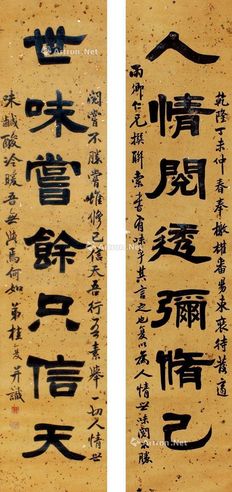 人情閱透彌脩己
世味嘗餘只信天
乾隆丁未仲春奉檄柑番禺東裝待發適
雨卿仁兄撰聯索書有味乎其言之也復以為人情世味閱不勝
閱嘗不勝嘗惟修己信天吾行吾素舉一切人情世
味鹹酸冷暖吾無與焉何如弟桂芳并識